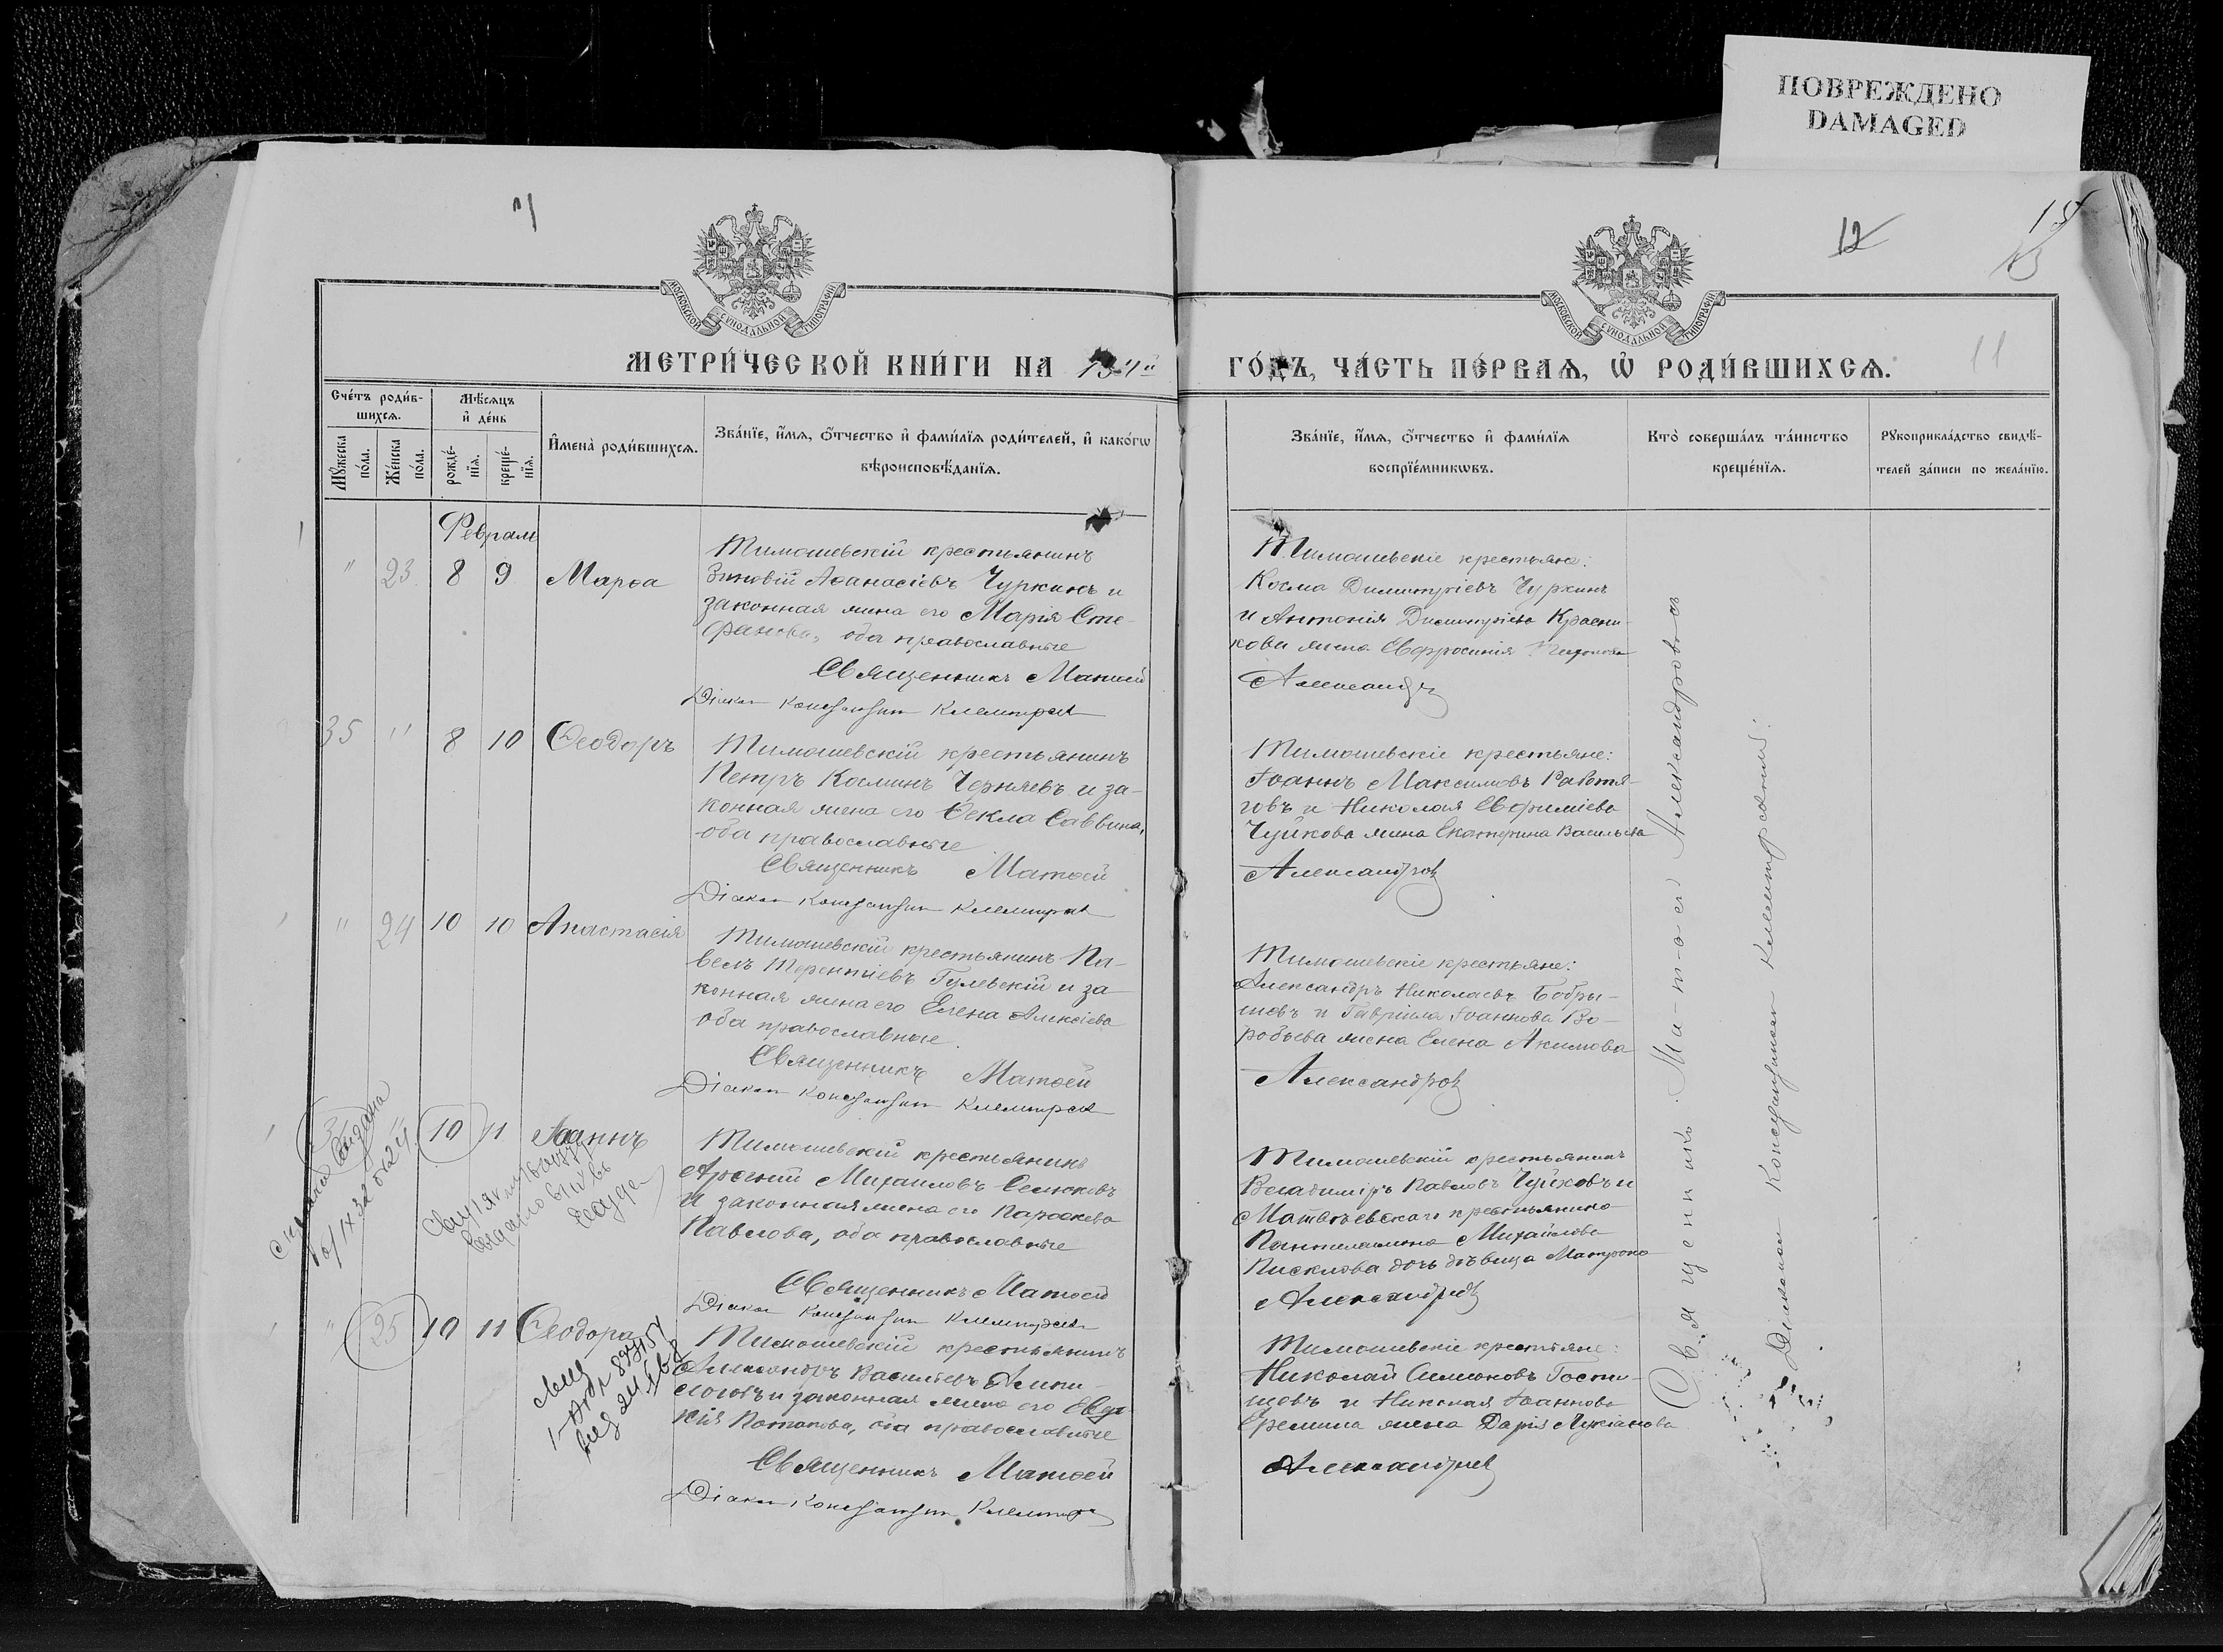 ПОВРЕЖДЕНО
DAMAGED
12
15
11
МОСКОВСКОЙ СУНОДАЛЬНОЙ ТИПОГРАФІИ
МОСКОВСКОЙ СУНОДАЛЬНОЙ ТИПОГРАФІИ
МЕТРИ́ЧЕСКОЙ КНИ́ГИ НА
ГО́ДЪ, ЧА́СТЬ ПЕ́РВАѦ, Ѡ҆ РОДИ́ВШИХСѦ.
Сче́тъ роди́в-
шихсѧ.
Мꙋ́жеска
по́ла.
Же́нска
по́ла.
Мѣ́сѧцъ
и҆ де́нь
рожде́-
нїѧ.
креще́-
нїѧ.
И҆мена̀ роди́вшихсѧ.
Зва́нїе, и҆́мѧ, ѻ҆́тчество и҆ фами́лїѧ роди́телей, и҆ како́гѡ
вѣроисповѣ́данїѧ.
Зва́нїе, и҆́мѧ, ѻ҆́тчество и҆ фами́лїѧ
воспрїе́мникѡвъ.
Кто̀ соверша́лъ та́инство
креще́нїѧ.
Рꙋкоприкла́дство свидѣ́-
телей за́писи по жела́нїю.
Февраль
" 23 8 9 Марѳа
Тимошевскій крестьянинъ
Зиновій Аѳанасіевъ Чуркинъ и
законная жена его Марія Сте-
фанова, оба православные
Священникъ Матѳей
Діакон Константин Клементьев
Тимошевскіе крестьяне:
Косма Димитріевъ Чуркинъ
и Антонія Димитріева Красни-
кова жена Евфросинія
Александров
35 " 8 10 Ѳеодоръ
Тимошевскій крестьянинъ
Петръ Косминъ Черняевъ и за-
конная жена его Ѳекла Саввина,
оба православные
Священникъ Матѳей
Діакон Константин Клементьев
Тимошевскіе крестьяне:
Іоаннъ Максимовъ Работя-
говъ и Николая Евфиміева
Чуйкова жена Екатерина Васильева
Александров
" 24 10 10 Анастасія
Тимошевскій крестьянинъ Па-
велъ Терентіевъ Гулевскій и за
конная жена его Елена Алексіева
оба православные.
Священникъ Матѳей
Діакон Константин Клементьев
Тимошевскіе крестьяне:
Александръ Николаевъ Бобры-
шевъ и Гавріила Іоаннова Во-
робьева жена Елена Акимова
Александров
10 11 Іоаннъ
Тимошевскій крестьянинъ
Арсеній Михаиловъ Селюковъ
и законная жена его Параскева
Павлова, оба православные
Священникъ Матѳей
Діакон Константин Клементьев
Тимошевскій крестьянинъ
Владиміръ Павловъ Чуйковъ и
Матвѣевскаго крестьянина
Пантелеимона Михайлова
Писклова дочь дѣвица Матрона
Александров
" 25 10 11 Ѳеодора
Тимошевскій крестьянинъ
Александръ Васильевъ
и законная жена его Евдо-
кія Потапова, оба православные
Священникъ Матѳей
Діакон Константин Клементьев
Тимошевскіе крестьяне:
Николай Симоновъ Гости-
щевъ и Николая Іоаннова
Еремина жена Дарія Лукіанова
Александров
Священникъ Матѳей Александровъ
Діаконъ Константинъ Клементьевъ